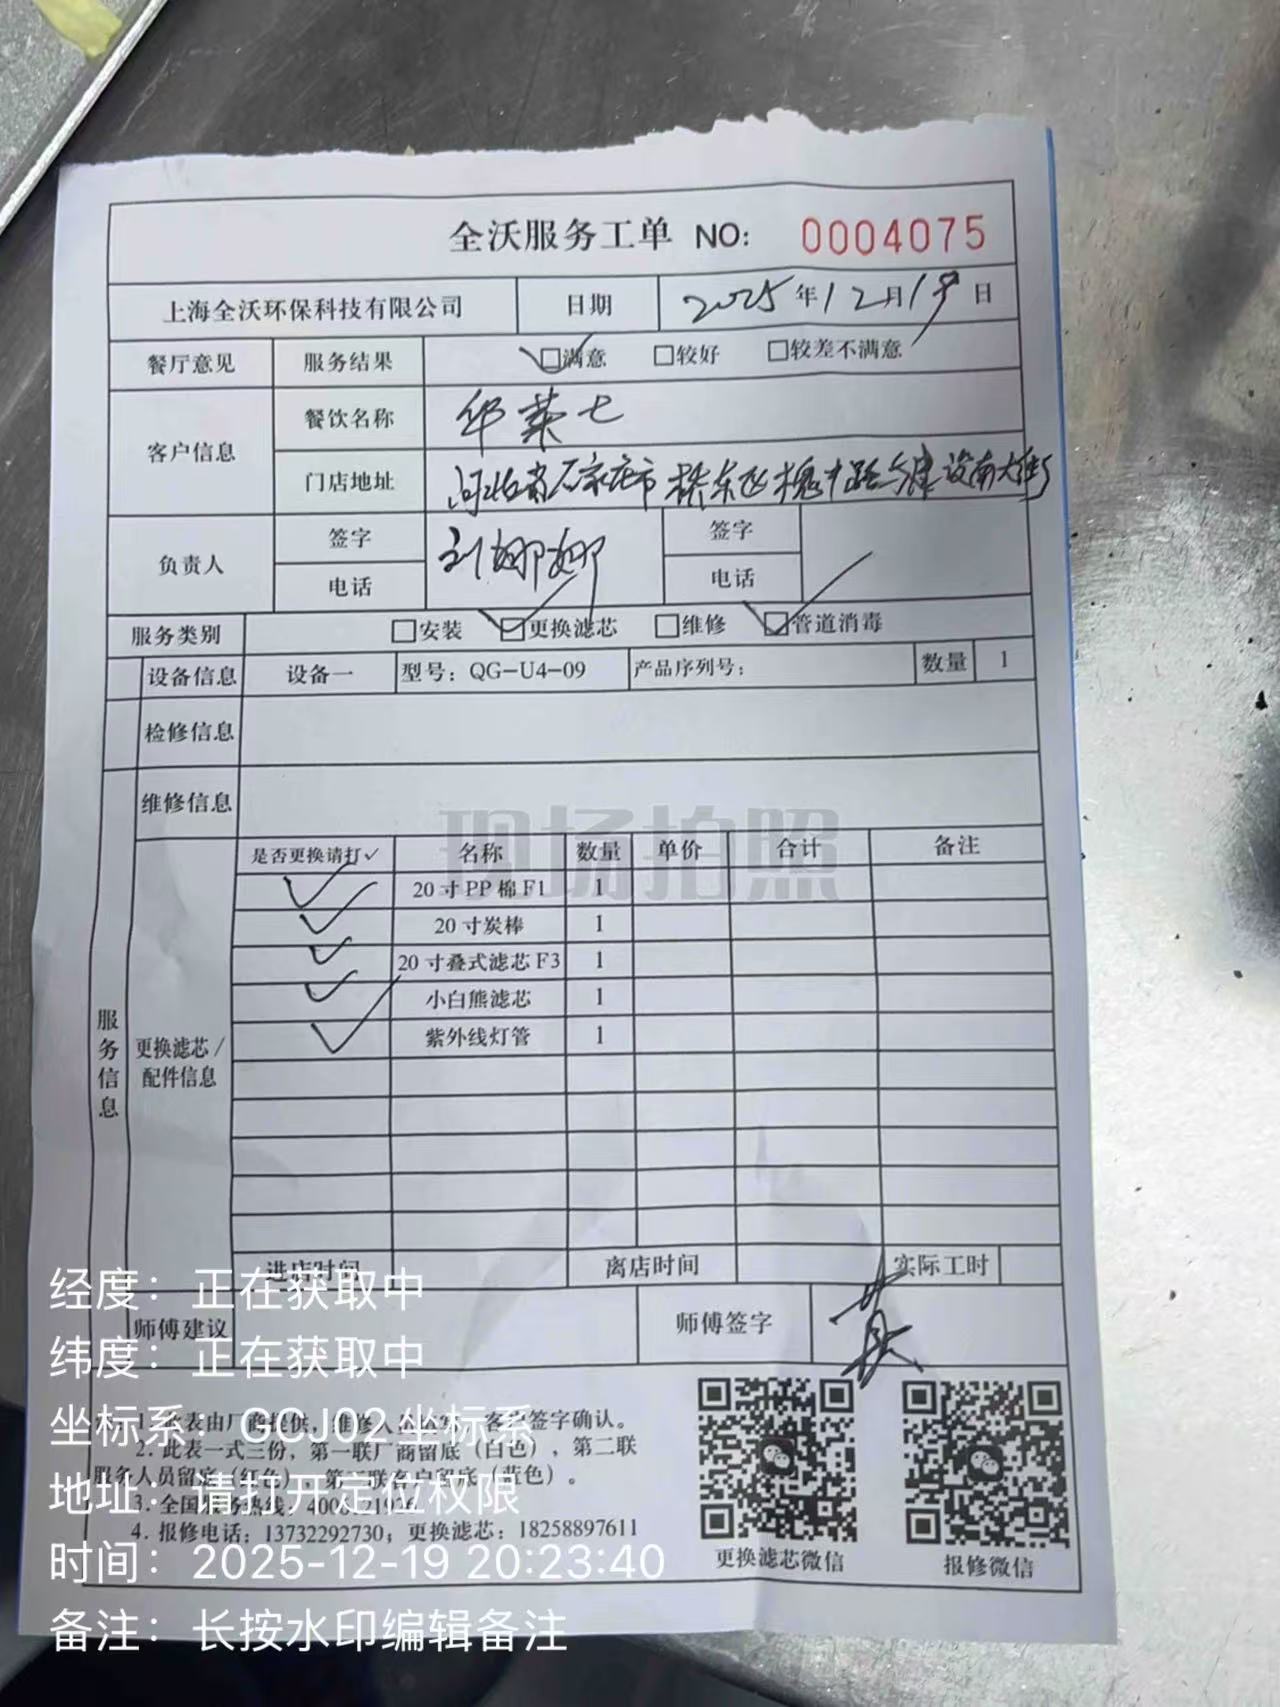 全沃服务工单 NO: 0004075
上海全沃环保科技有限公司 日期 2025年12月19日
餐厅意见 服务结果 ☑满意 □较好 □较差不满意
客户信息 餐饮名称 华莱士
门店地址 河北省石家庄市桥东区槐中路与建设南大街
负责人 签字 刘娜娜 签字
电话 电话
服务类别 □安装 ☑更换滤芯 □维修 ☑管道消毒
设备信息 设备一 型号: QG-U4-09 产品序列号: 数量 1
检修信息
维修信息
现场拍照
服务信息
更换滤芯/
配件信息
是否更换请打✓ 名称 数量 单价 合计 备注
✓ 20寸PP棉F1 1
✓ 20寸炭棒 1
✓ 20寸叠式滤芯F3 1
✓ 小白熊滤芯 1
✓ 紫外线灯管 1
进店时间 离店时间 实际工时
师傅建议 师傅签字
1. 此表由厂商提供, 维修人 客户签字确认。
2. 此表一式三份, 第一联厂商留底(白色), 第二联
服务人员留底(红色) 第三联客户留底(蓝色)。
3. 全国服务热线:
4. 报修电话: 13732292730; 更换滤芯: 18258897611
更换滤芯微信 报修微信
经度: 正在获取中
纬度: 正在获取中
坐标系: GCJ02坐标系
地址: 请打开定位权限
时间: 2025-12-19 20:23:40
备注: 长按水印编辑备注